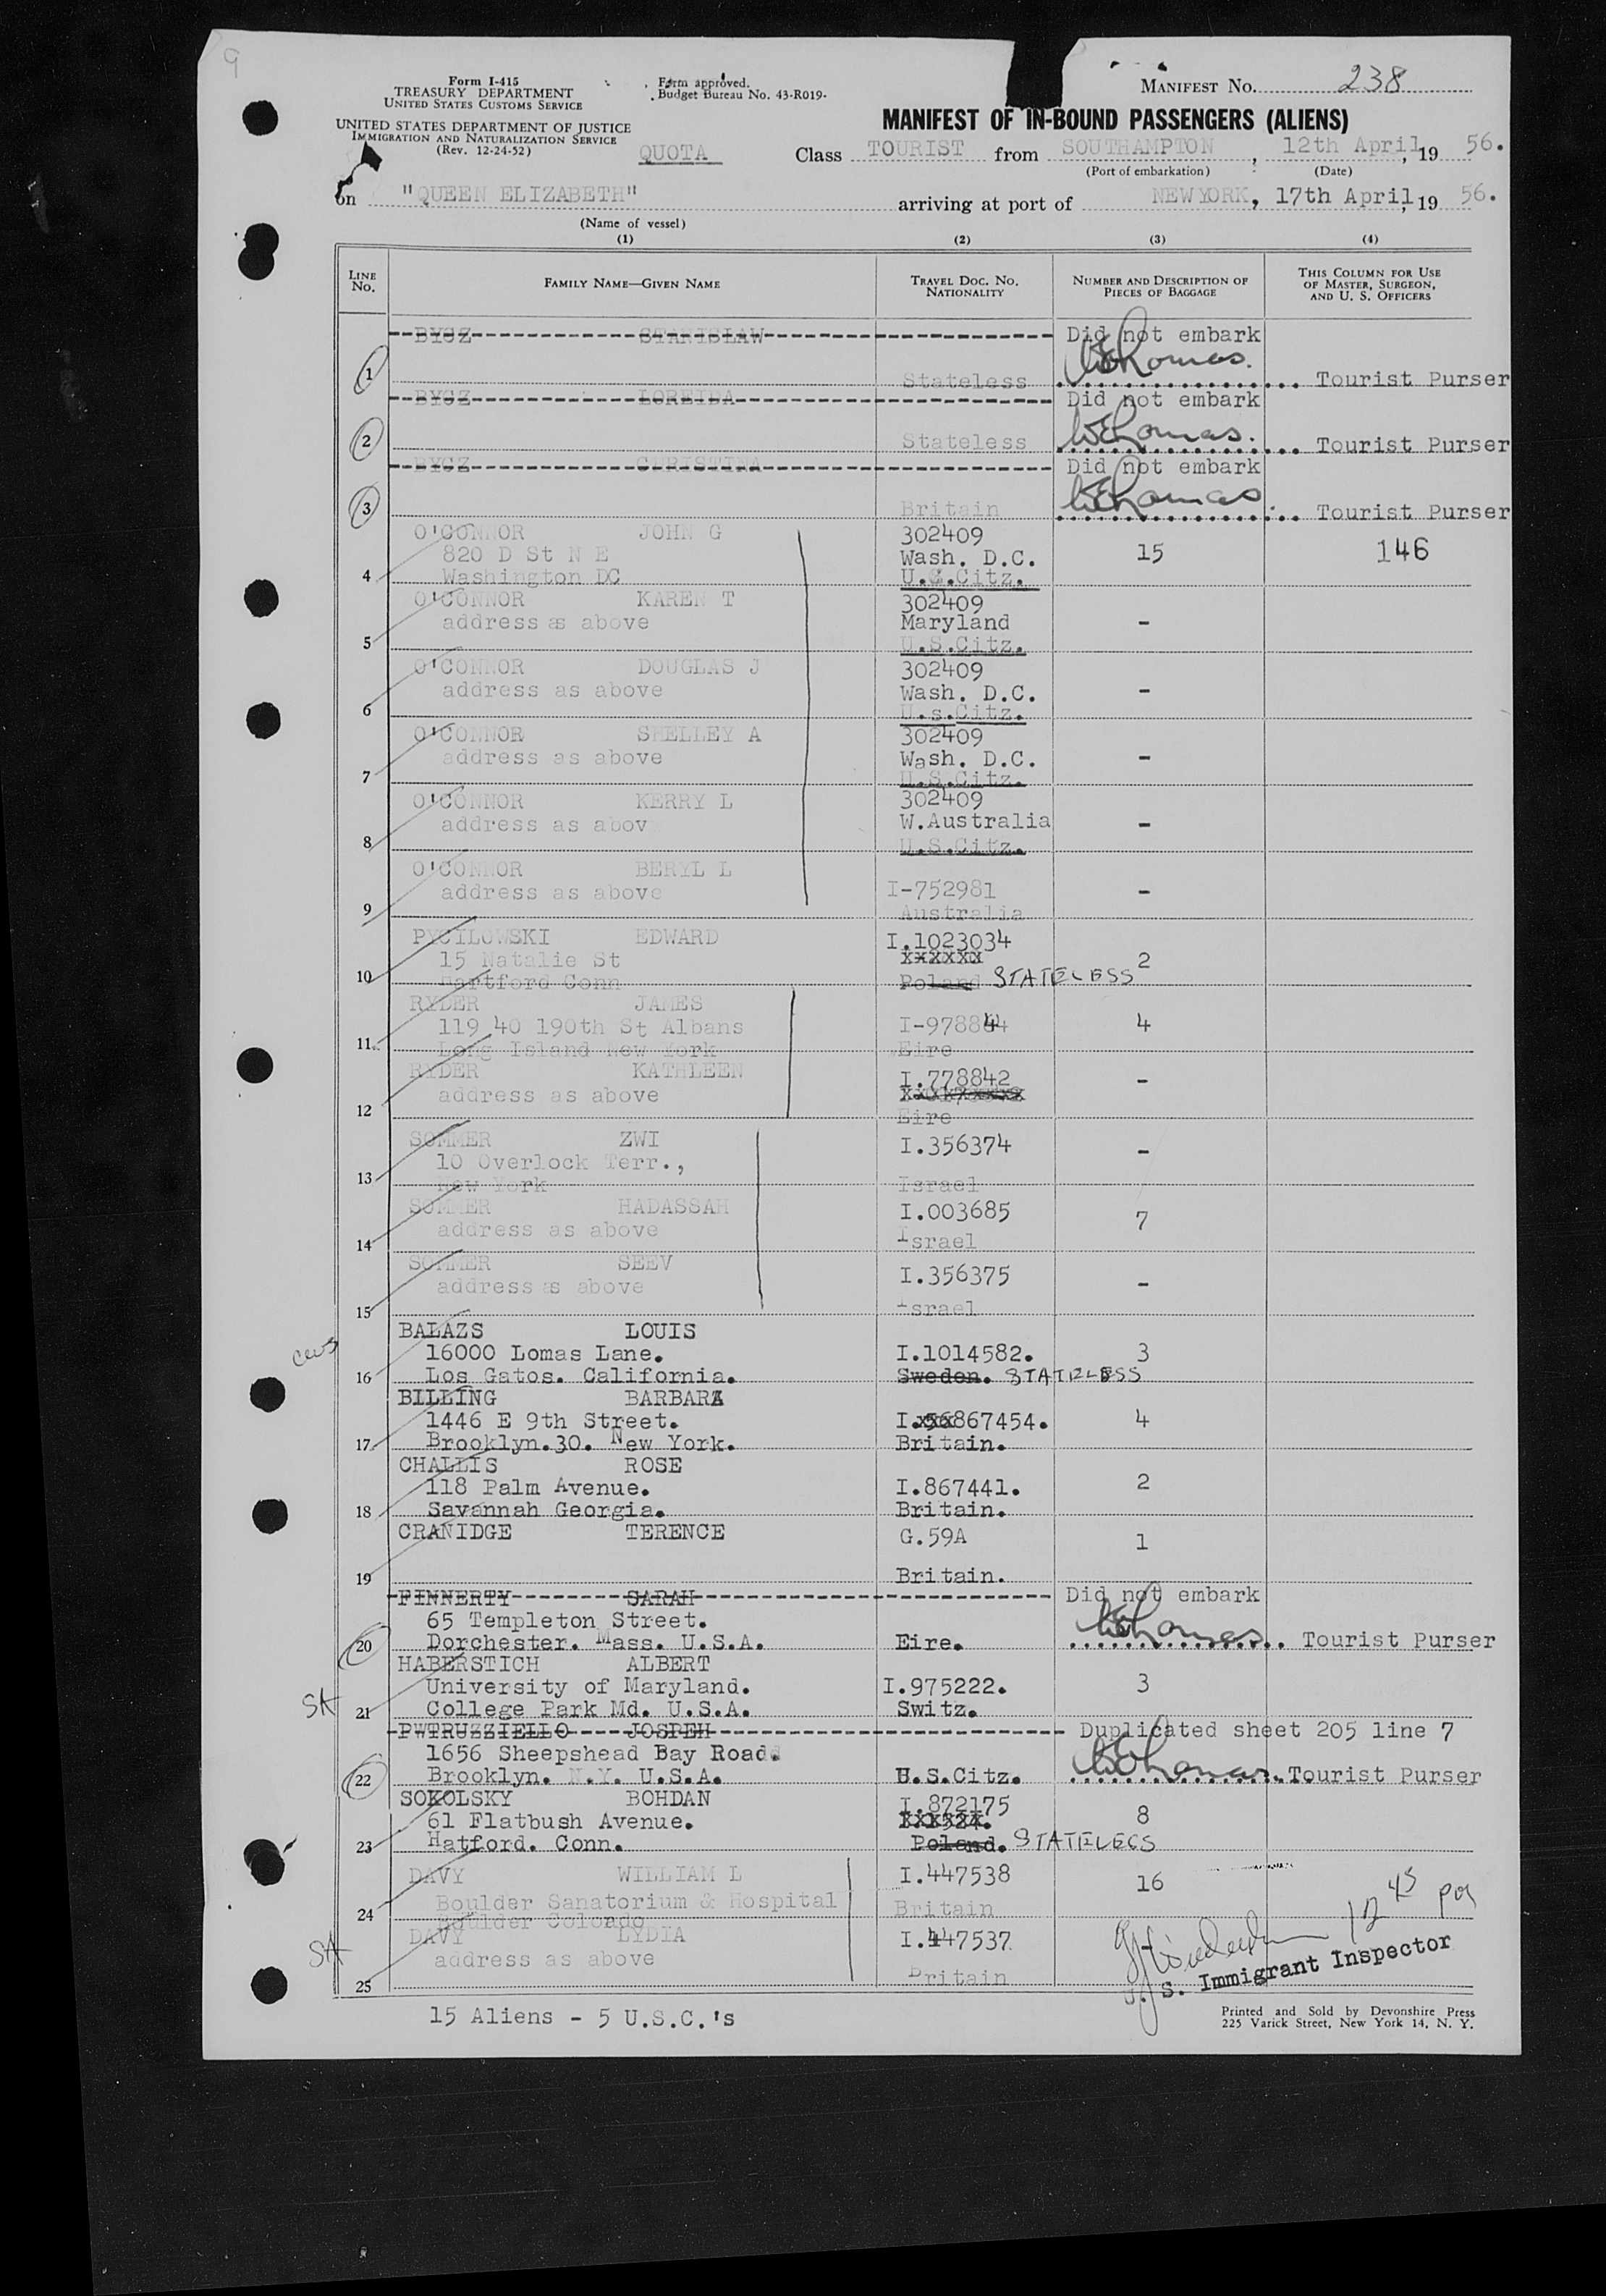 9
Form I-415
TREASURY DEPARTMENT
UNITED STATES CUSTOMS SERVICE
UNITED STATES DEPARTMENT OF JUSTICE
IMMIGRATION AND NATURALIZATION SERVICE
(Rev. 12-24-52)
Form approved.
Budget Bureau No. 43-R019-
MANIFEST No. 238
MANIFEST OF IN-BOUND PASSENGERS (ALIENS)
QUOTA Class TOURIST from SOUTHAMPTON, 12th April, 19 56.
(Port of embarkation) (Date)
on "QUEEN ELIZABETH" arriving at port of NEW YORK, 17th April, 19 56.
(Name of vessel)
(1) (2) (3) (4)
LINE No. FAMILY NAME—GIVEN NAME TRAVEL DOC. NO. NATIONALITY NUMBER AND DESCRIPTION OF PIECES OF BAGGAGE THIS COLUMN FOR USE OF MASTER, SURGEON, AND U. S. OFFICERS
BYCZ STANISLAW Did not embark
1 Stateless Tourist Purser
BYCZ LOREIDA Did not embark
2 Stateless Tourist Purser
BYCZ CHRISTINA Did not embark
3 Britain Tourist Purser
O'CONNOR JOHN G 302409
820 D St N E Wash. D.C. 15 146
4 Washington DC U.S.Citz.
O'CONNOR KAREN T 302409
address as above Maryland -
5 U.S.Citz.
O'CONNOR DOUGLAS J 302409
address as above Wash. D.C. -
6 U.s.Citz.
O'CONNOR SHELLEY A 302409
address as above Wash. D.C. -
7 U.S.Citz.
O'CONNOR KERRY L 302409
address as abov W.Australia -
8 U.S.Citz.
O'CONNOR BERYL L
address as above I-752981 -
9 Australia
PYCILOWSKI EDWARD I.1023034
15 Natalie St xxxxxx 2
10 Hartford Conn Poland STATELESS
RYDER JAMES
119 40 190th St Albans I-978844 4
11 Long Island New York Eire
RYDER KATHLEEN I.778842 -
address as above
12 Eire
SOMMER ZWI I.356374 -
10 Overlock Terr.,
13 New York Israel
SOMMER HADASSAH I.003685 7
address as above
14 Israel
SOMMER SEEV I.356375 -
address as above
15 Israel
BALAZS LOUIS
16000 Lomas Lane. I.1014582. 3
16 Los Gatos. California. Sweden. STATELESS
BILLING BARBARA
1446 E 9th Street. I.xxx867454. 4
17 Brooklyn.30. New York. Britain.
CHALLIS ROSE
118 Palm Avenue. I.867441. 2
18 Savannah Georgia. Britain.
CRANIDGE TERENCE G.59A 1
19 Britain.
FINNERTY SARAH Did not embark
65 Templeton Street.
20 Dorchester. Mass. U.S.A. Eire. Tourist Purser
HABERSTICH ALBERT
University of Maryland. I.975222. 3
SA 21 College Park Md. U.S.A. Switz.
PWTRUZZIELLO JOSPEH Duplicated sheet 205 line 7
1656 Sheepshead Bay Road.
22 Brooklyn. N.Y. U.S.A. U.S.Citz. Tourist Purser
SOKOLSKY BOHDAN I.872175
61 Flatbush Avenue. 8
23 Hatford. Conn. Poland. STATELECS
DAVY WILLIAM L I.447538 16
Boulder Sanatorium & Hospital Britain
24 Boulder Colorado 12 45 pm
DAVY LYDIA I.447537
SA address as above
25 Britain
S. Immigrant Inspector
15 Aliens - 5 U.S.C.'s
Printed and Sold by Devonshire Press
225 Varick Street, New York 14, N. Y.